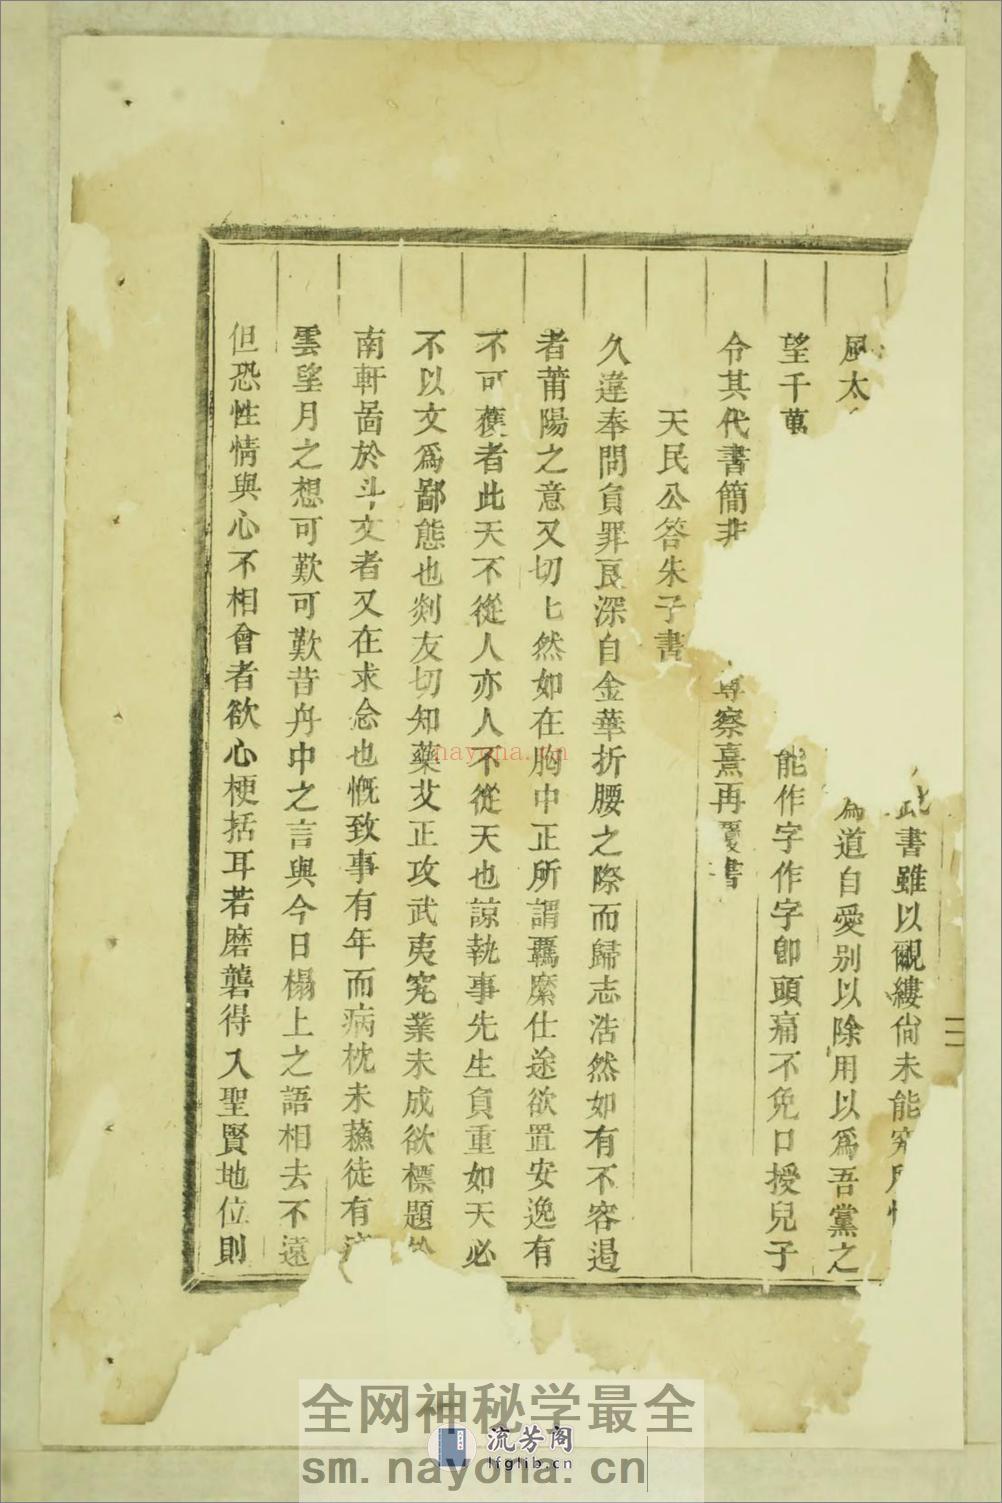 此書雖以覼縷尙未能究
風太
爲道自愛別以除用以爲吾黨之
望千萬
能作字作字卽頭痛不免口授兒子
令其代書簡非
察熹再覆書
天民公答朱子書
久違奉問負罪良深自金華折腰之際而歸志浩然如有不容遏
者莆陽之意又切匕然如在胸中正所謂羈縻仕途欲置安逸有
不可獲者此天不從人亦人不從天也諒執事先生負重如天必
不以文爲鄙態也剡友切知藥艾正攻武夷究業未成欲標題
南軒啚於斗文者又在求念也慨致事有年而病枕未蘓徒有
雲望月之想可歎可歎昔舟中之言與今日榻上之語相去不遠
但恐性情與心不相會者欲心梗括耳若磨礱得入聖賢地位則
nayona.cn
全网神秘学最全
流芳阁
lfglib.cn
sm.nayona.cn